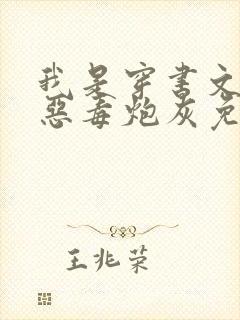 我是穿书文
恶毒炮灰免
王兆荣